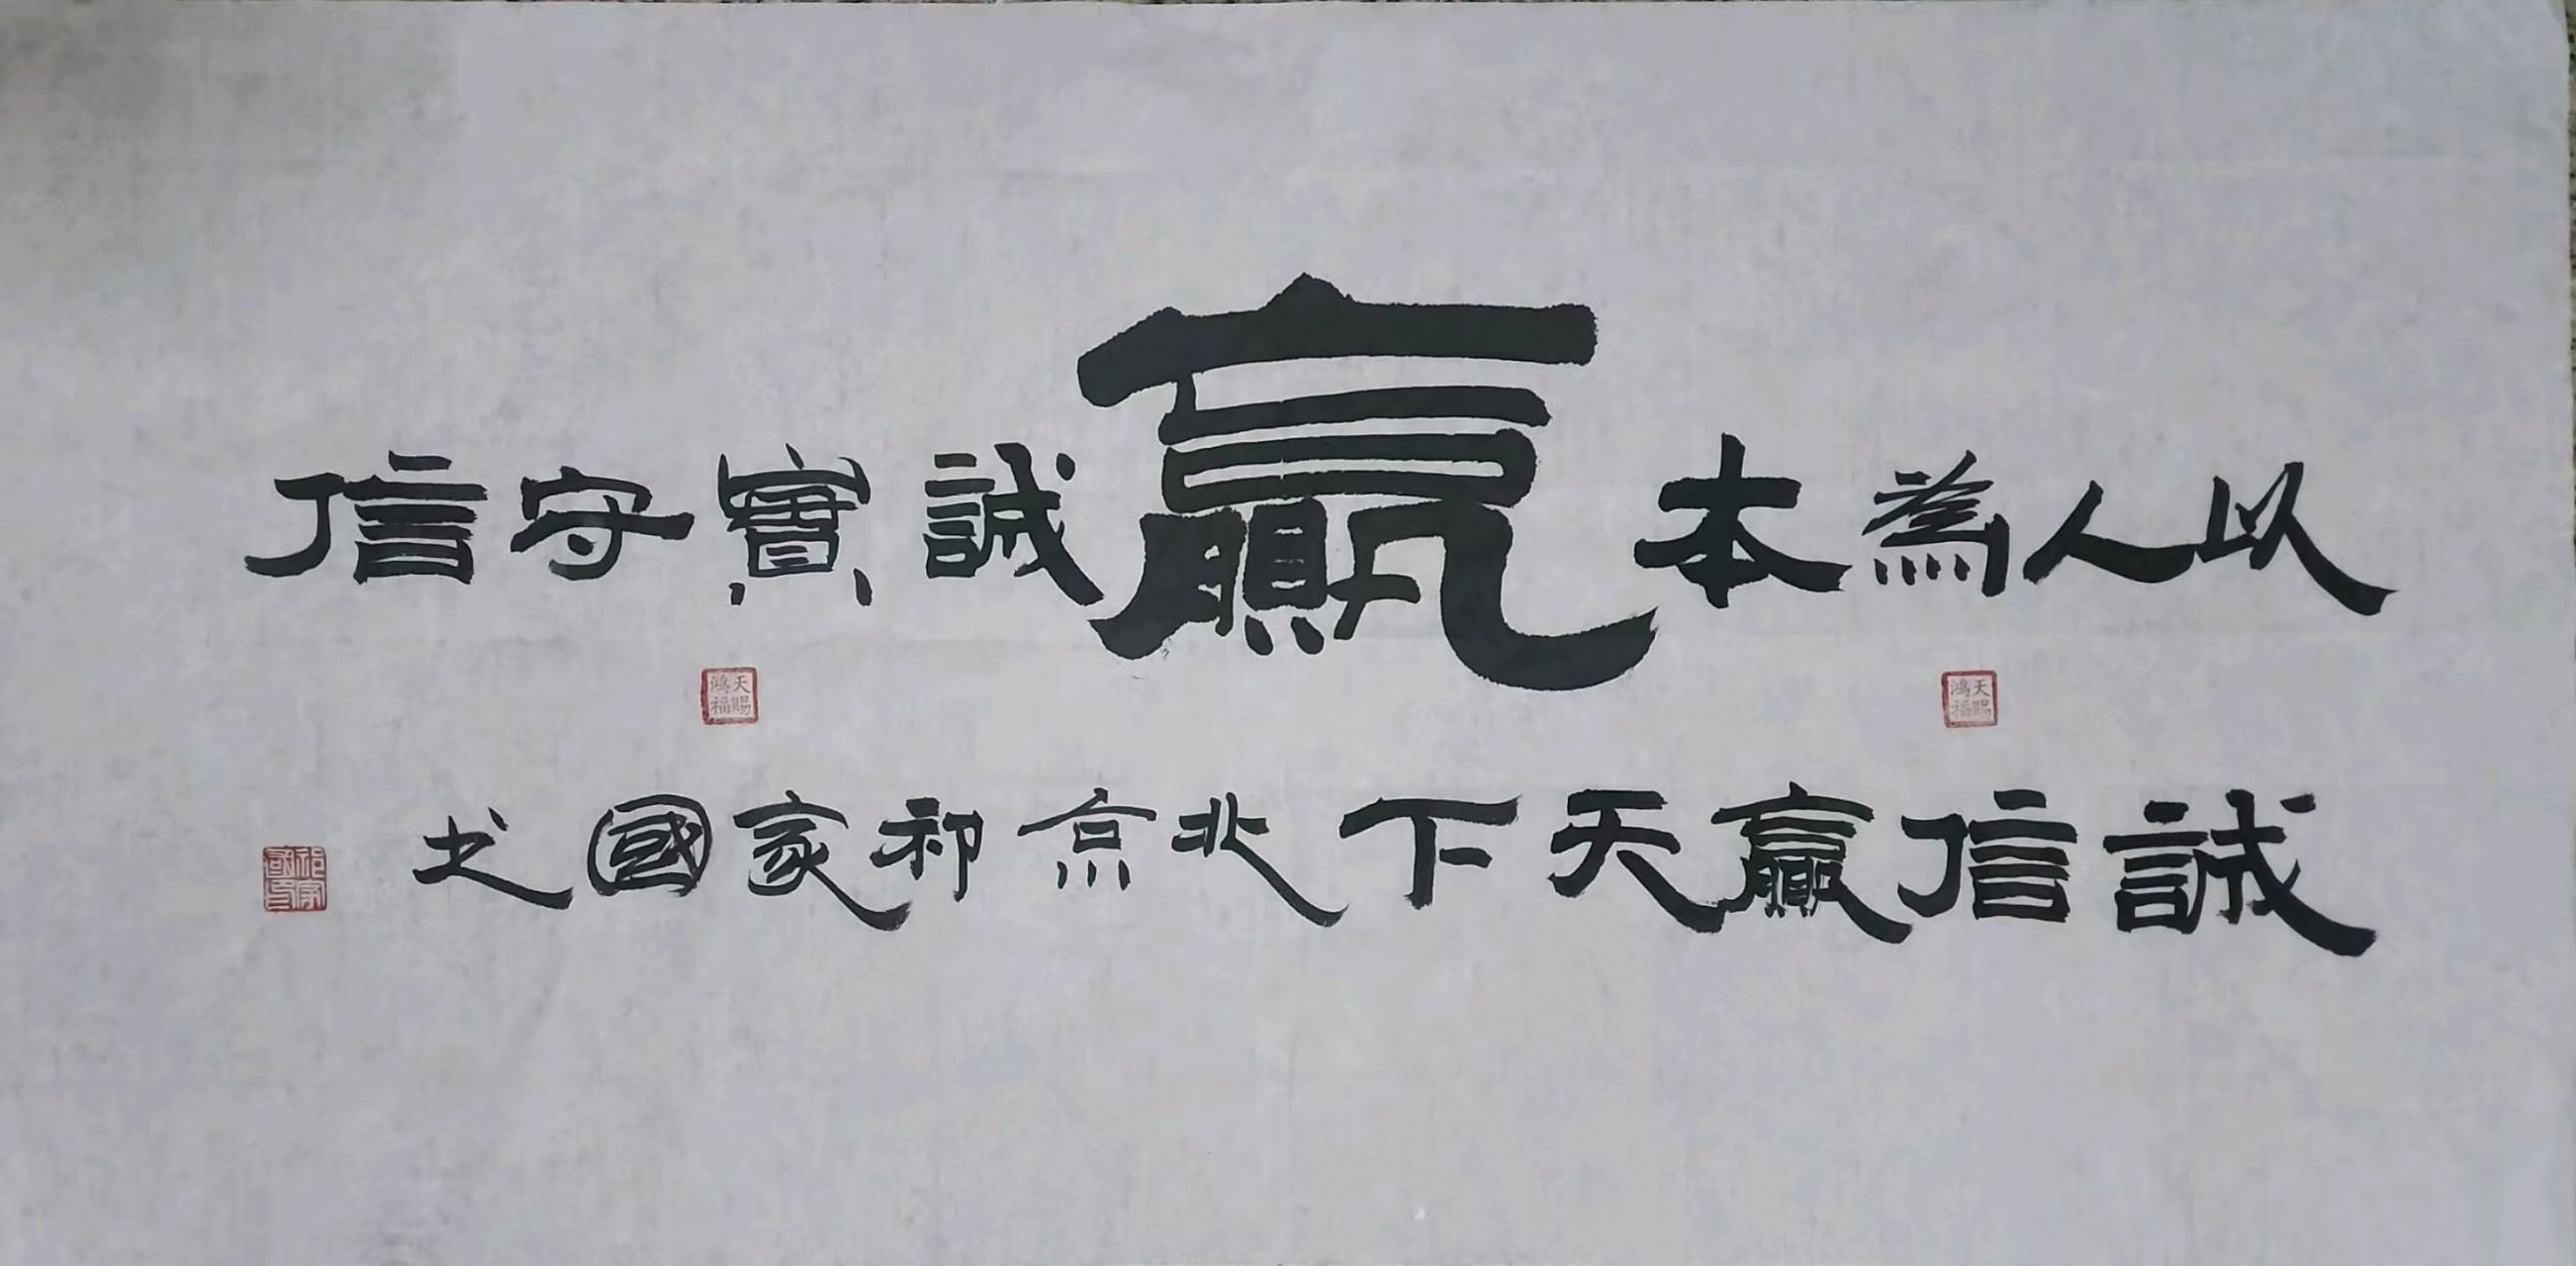 以人為本贏誠實守信
天賜鴻福
天賜鴻福
誠信贏天下北京祁家國书
祁家國印